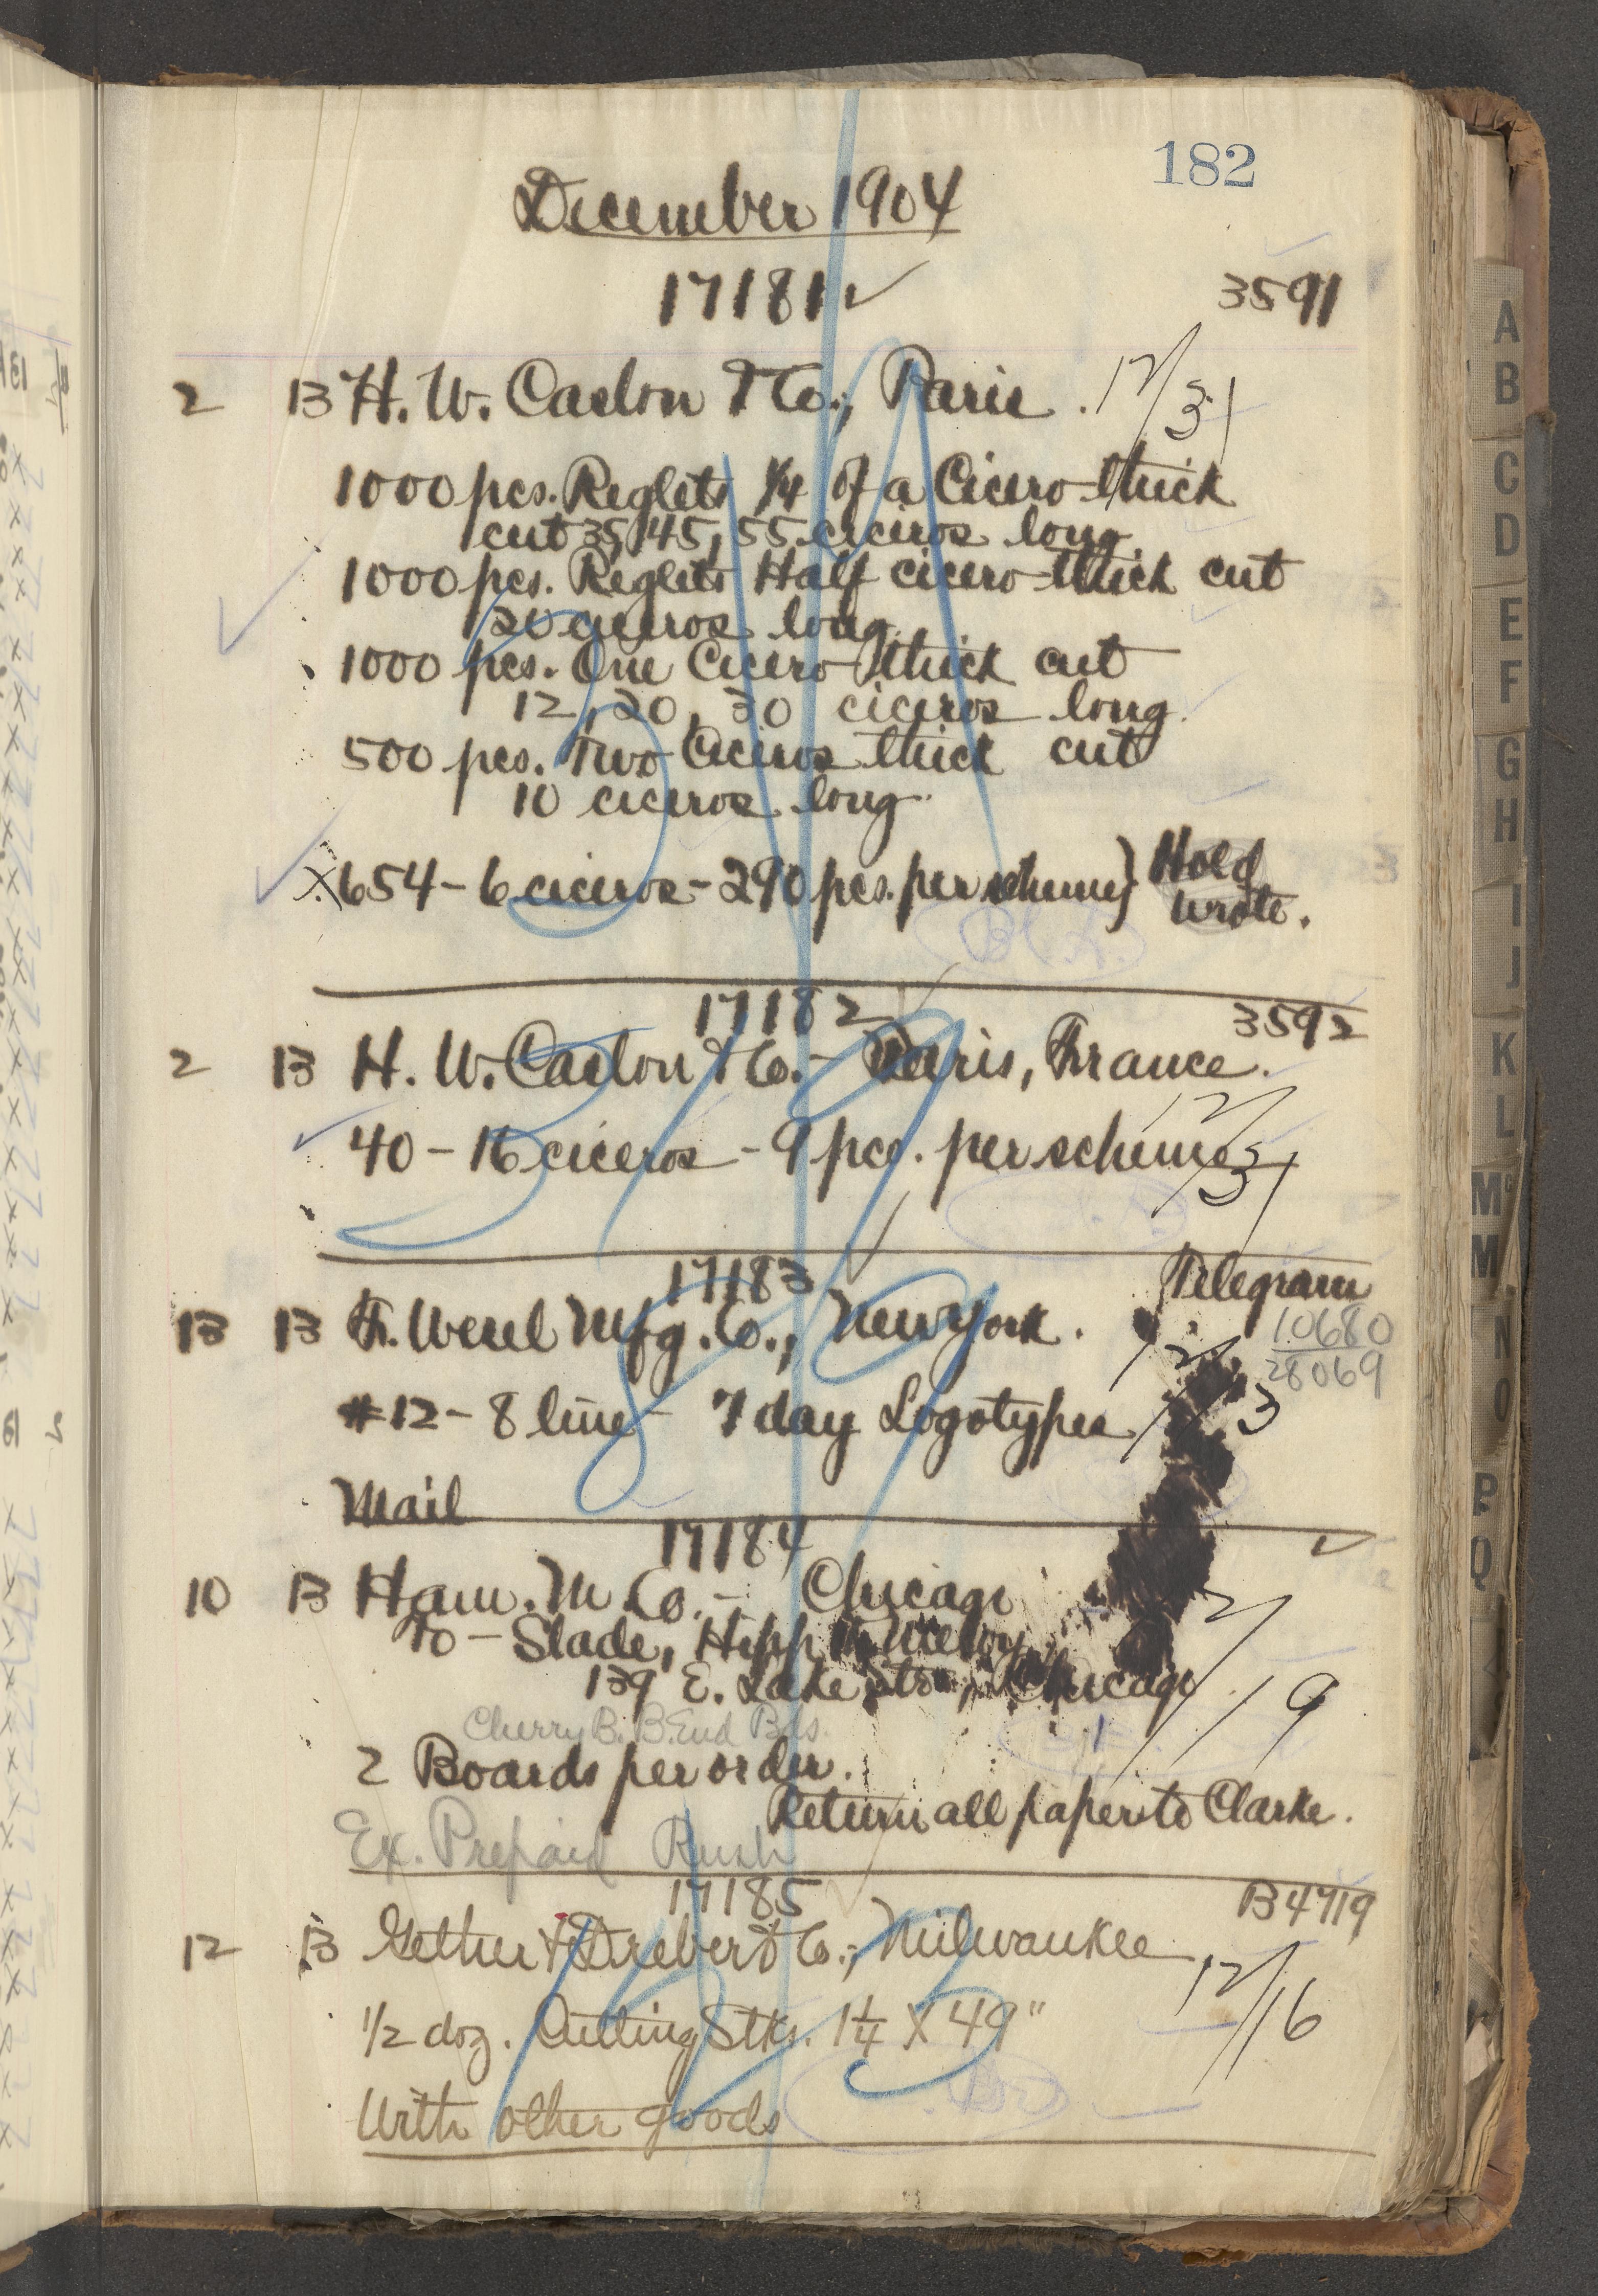 182
December 1904
17181 3591
2 13 H. W. Caslon & Co., Paris. 12/31
1000 pcs. Reglets 1/4 of a Cicero thick
cut 35, 45, 55 ciceros long
1000 pcs. Reglets Half cicero thick cut
20 ciceros long
1000 pcs. One Cicero thick cut
12, 20, 30 ciceros long.
500 pcs. Two Ciceros thick cut
10 ciceros long.
X 654 - 6 ciceros - 290 pcs. per scheme} Hold
wrote.
17182 3592
2 13 H. W. Caslon & Co. - Paris, France.
40 - 16 ciceros - 9 pcs. per scheme 12/31
17183 Telegram
13 13 F. Wesel Mfg. Co., New York. 10680
28069
#12 - 8 line - 7 day Logotypes 12/13
Mail
17184
10 13 Ham. M. Co. - Chicago
To - Slade, Hipp &
139 E. Lake Str., Chicago 12/19
Cherry B. B. End Bds.
2 Boards per order.
Return all papers to Clarke.
Ex. Prepaid Rush
17185 B4719
12 13 Gether & Drebert Co., Milwaukee 12/16
1/2 doz. Cutting Stks. 1 1/4 X 49"
With other goods
A
B
C
D
E
F
G
H
I
J
K
L
Mc
M
N
O
P
Q